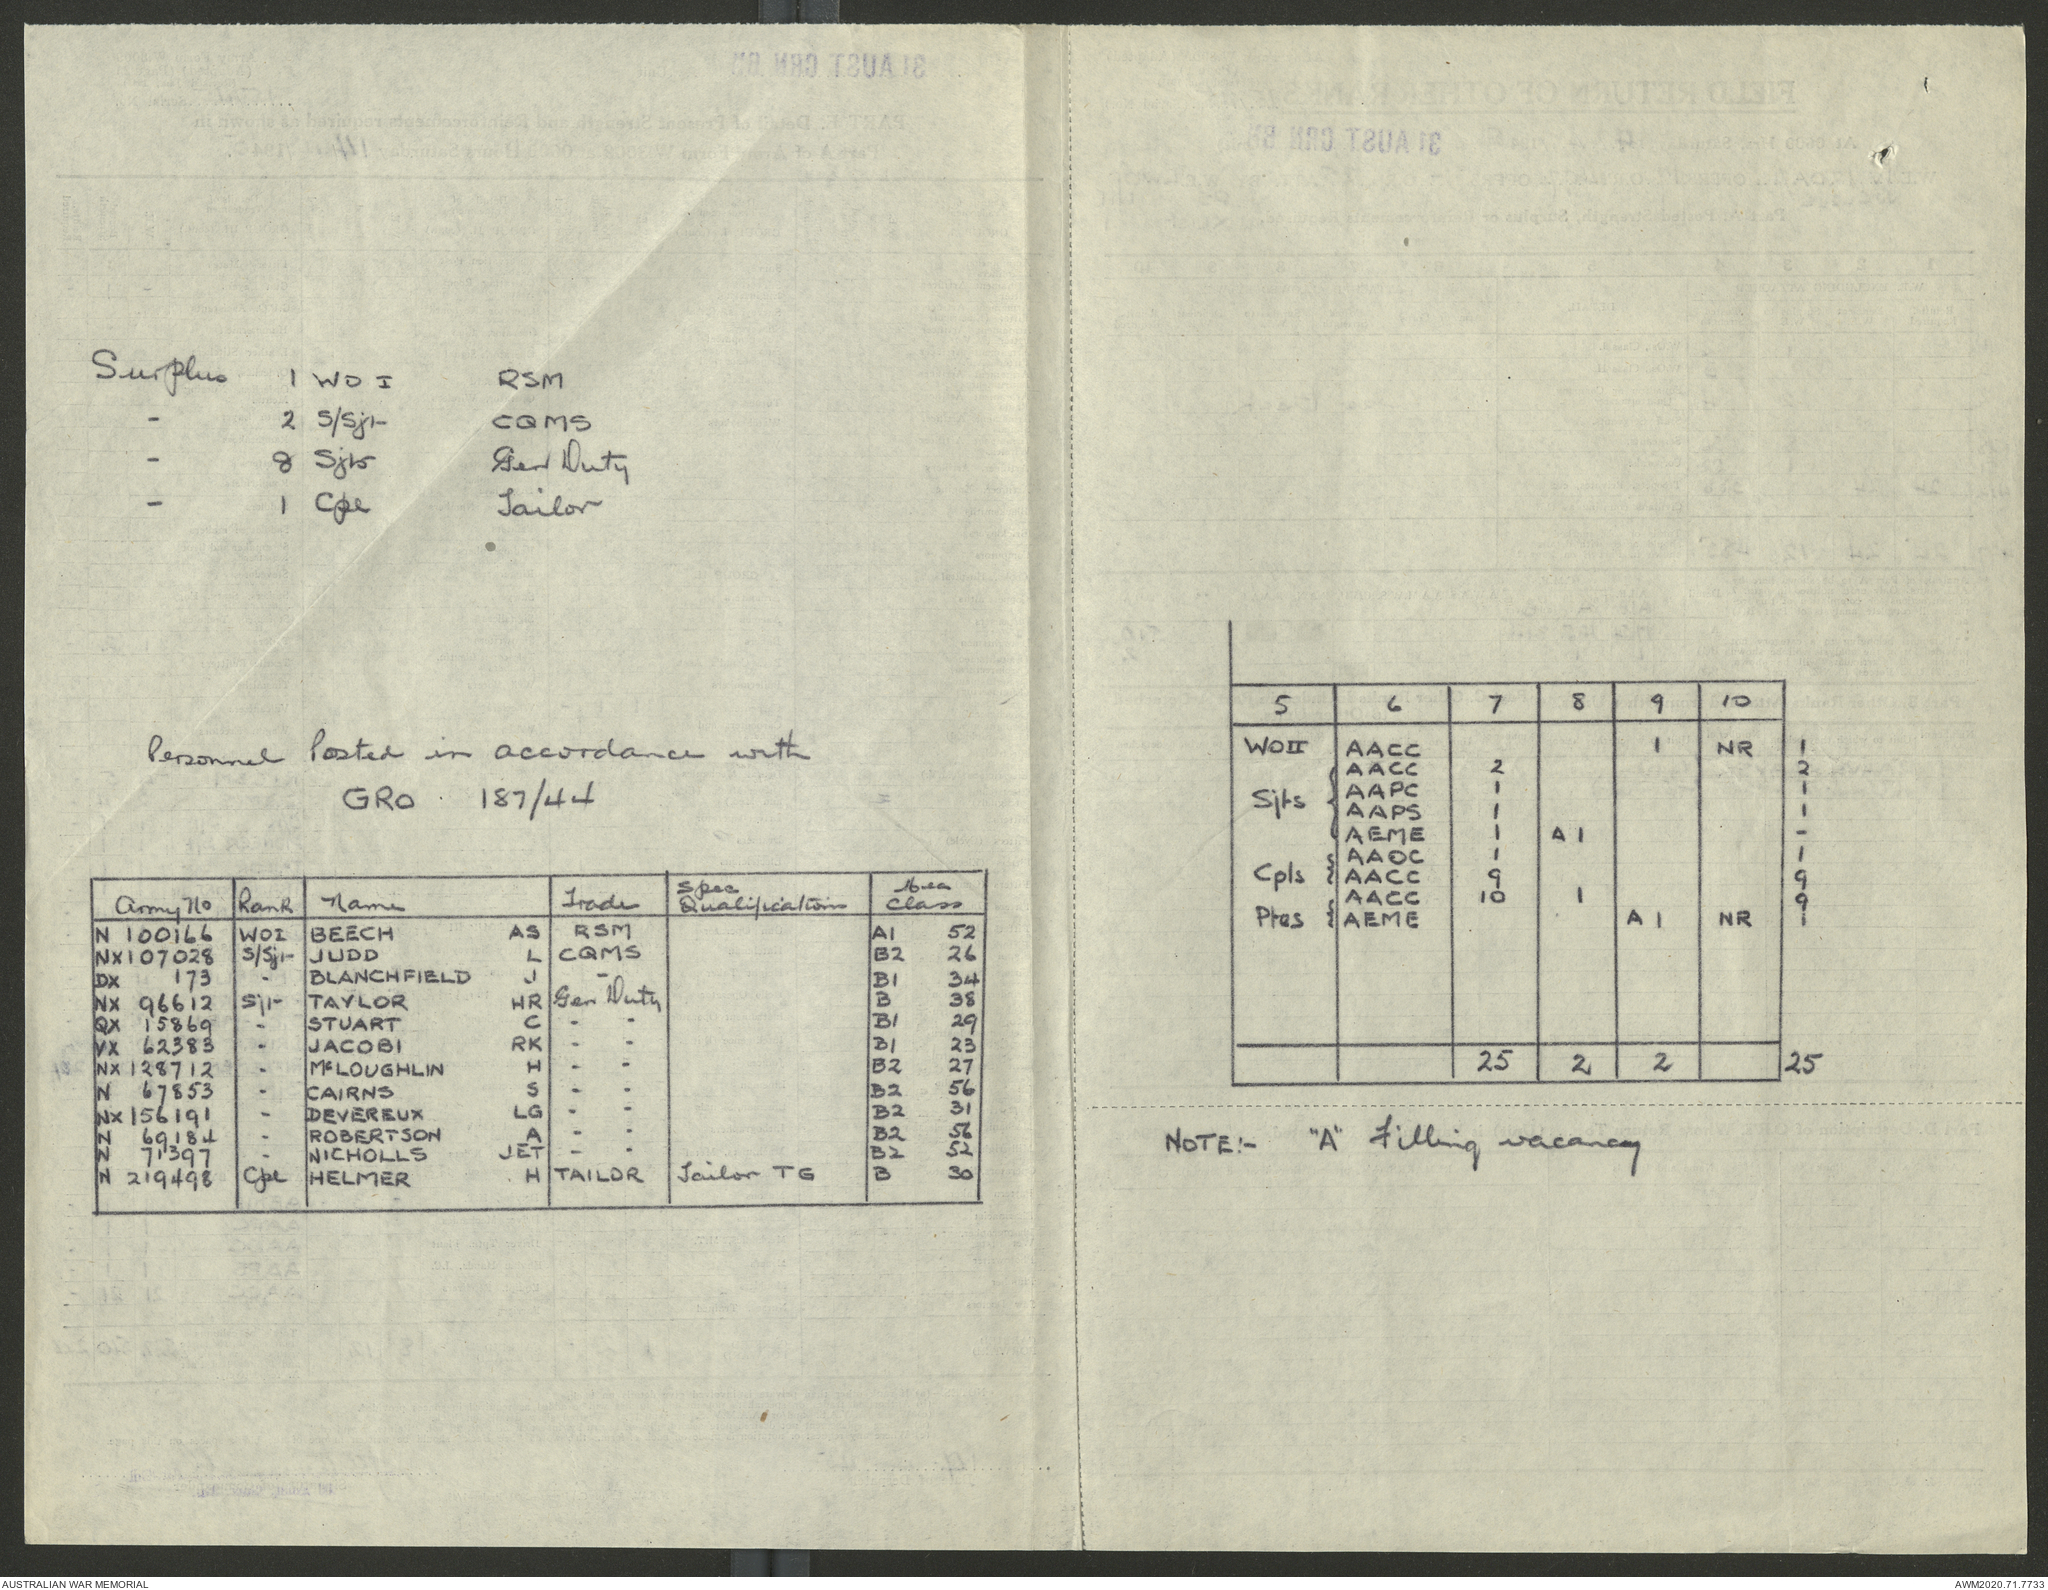 Surplus 1 WO I RSM
- 2 S/Sjt CQMS
- 8 Sjts Gen Duty
- 1 Cpl Tailor
Personnel Posted in accordance with
GRO 187/44
Army No Rank Name Trade Spec Qualifications Med Class
N 100166 WOI BEECH AS RSM A1 52
NX107028 S/Sjt JUDD L CQMS B2 26
DX 173 - BLANCHFIELD J - B1 34
NX 96612 Sjt TAYLOR HR Gen Duty B 38
QX 15869 - STUART C - - B1 29
VX 62383 - JACOBI RK - - B1 23
NX128712 - McLOUGHLIN H - - B2 27
N 67853 - CAIRNS S - - B2 56
NX156191 - DEVEREUX LG - - B2 31
N 69184 - ROBERTSON A - - B2 56
N 71397 - NICHOLLS JET - - B2 52
N 219498 Cpl HELMER H TAILOR Tailor TG B 30
5 6 7 8 9 10
WOII AACC 1 NR 1
AACC 2 2
Sjts AAPC 1 1
AAPS 1 1
AEME 1 A 1 -
AAOC 1 1
Cpls AACC 9 9
AACC 10 1 9
Ptes AEME A 1 NR 1
25 2 2 25
NOTE:- "A" Filling vacancy
AUSTRALIAN WAR MEMORIAL
AWM2020.71.7733